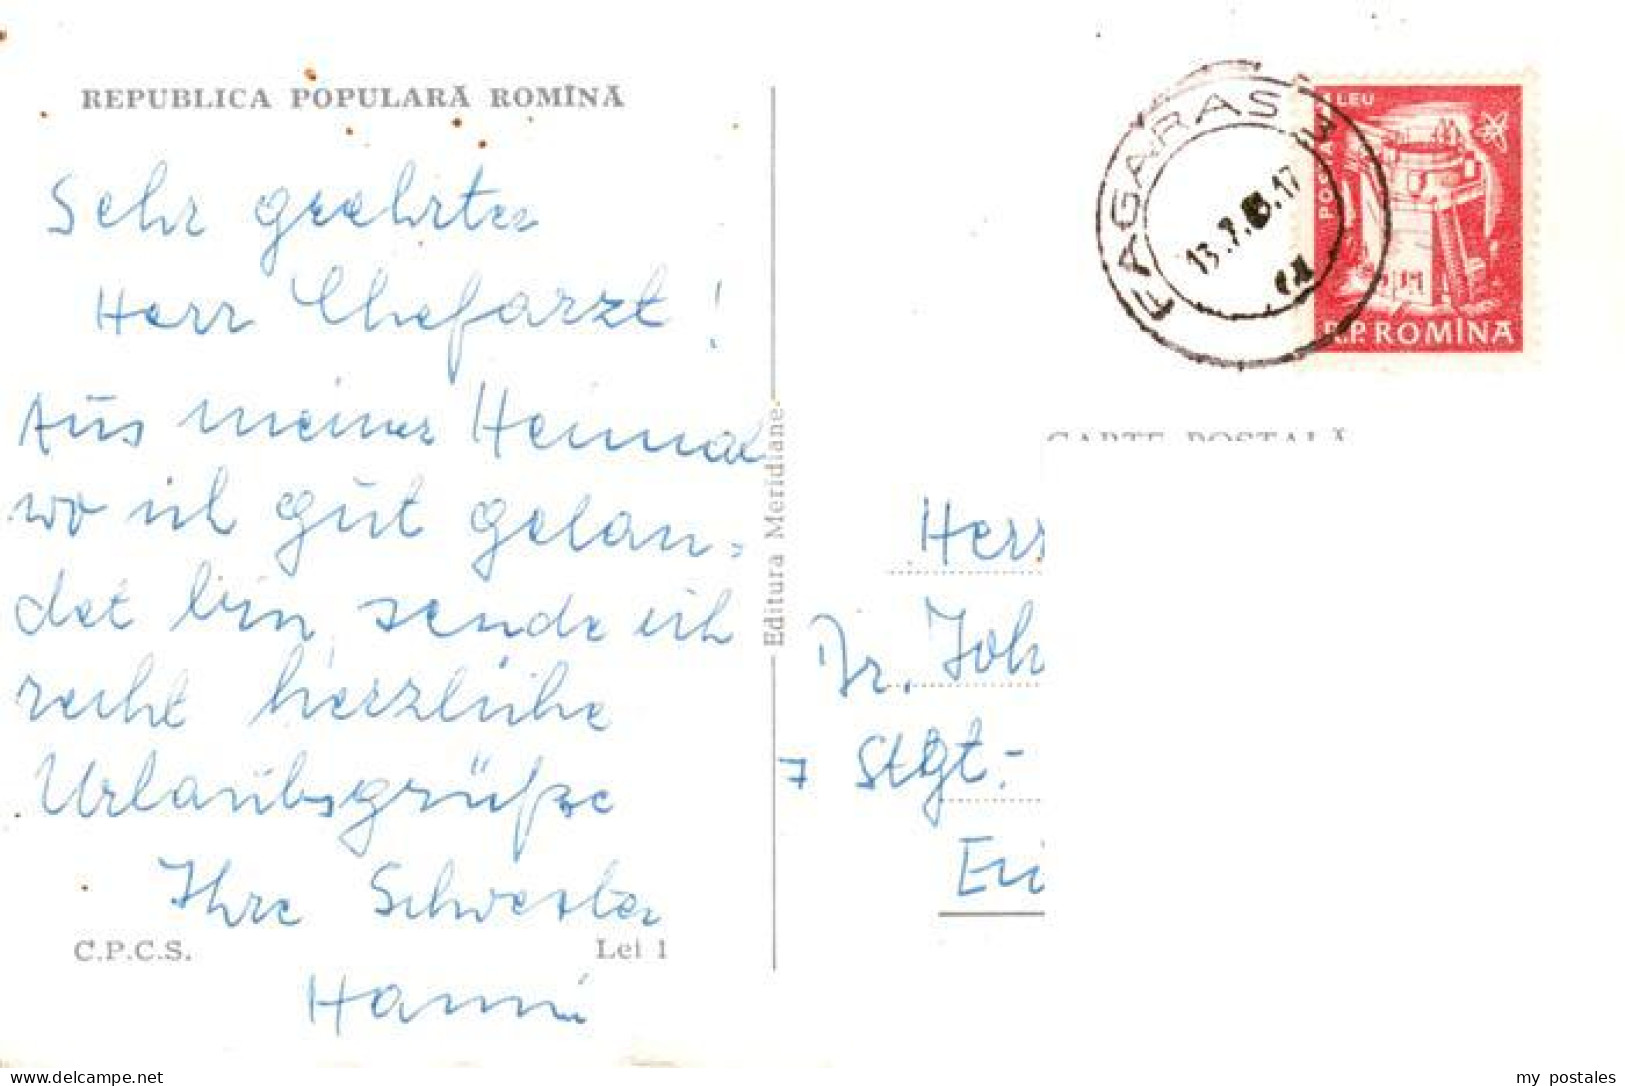 REPUBLICA POPULARĂ ROMÎNĂ
Sehr geehrter
Herr Chefarzt!
Aus meiner Heimat
wo ich gut gelan=
det bin, sende ich
recht herzliche
Urlaubsgrüße
Ihre Schwester
Hanni
C.P.C.S.
Lei 1
Editura Meridiane.
FAGARAS
13.7.
.17
1 LEU
POSTA
R.P. ROMÎNA
CARTE POSTALĂ
Herr
Dr. Joh
7 Stgt.-
Eri
delcampe.net
my_postales